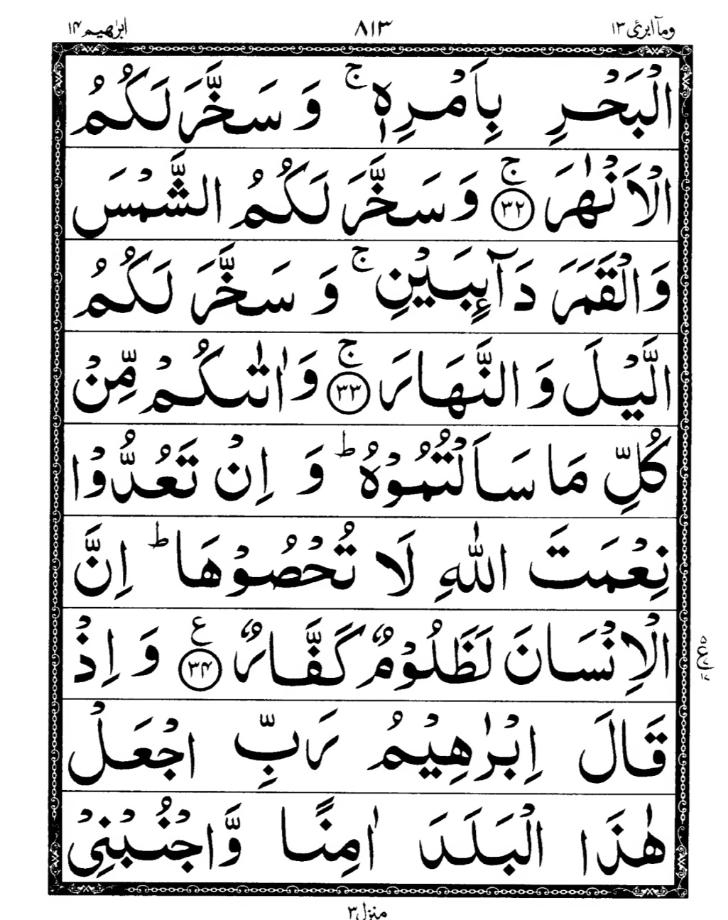 ابرٰهيم ١٤ ٨١٣ ومآ ابرئ ١٣
الْبَحْرِ بِاَمْرِهٖ ۚ وَ سَخَّرَ لَكُمُ
الْاَنْهٰرَ ۚ ﴿٣٢﴾ وَ سَخَّرَ لَكُمُ الشَّمْسَ
وَالْقَمَرَ دَآئِبَيْنِ ۚ وَ سَخَّرَ لَكُمُ
الَّيْلَ وَ النَّهَارَ ۚ ﴿٣٣﴾ وَ اٰتٰىكُمْ مِّنْ
كُلِّ مَا سَاَلْتُمُوْهُ ؕ وَ اِنْ تَعُدُّوْا
نِعْمَتَ اللّٰهِ لَا تُحْصُوْهَا ؕ اِنَّ
الْاِنْسَانَ لَظَلُوْمٌ كَفَّارٌ ۧ ﴿٣٤﴾ وَ اِذْ
قَالَ اِبْرٰهِيْمُ رَبِّ اجْعَلْ
هٰذَا الْبَلَدَ اٰمِنًا وَّاجْنُبْنِيْ
منزل ٣